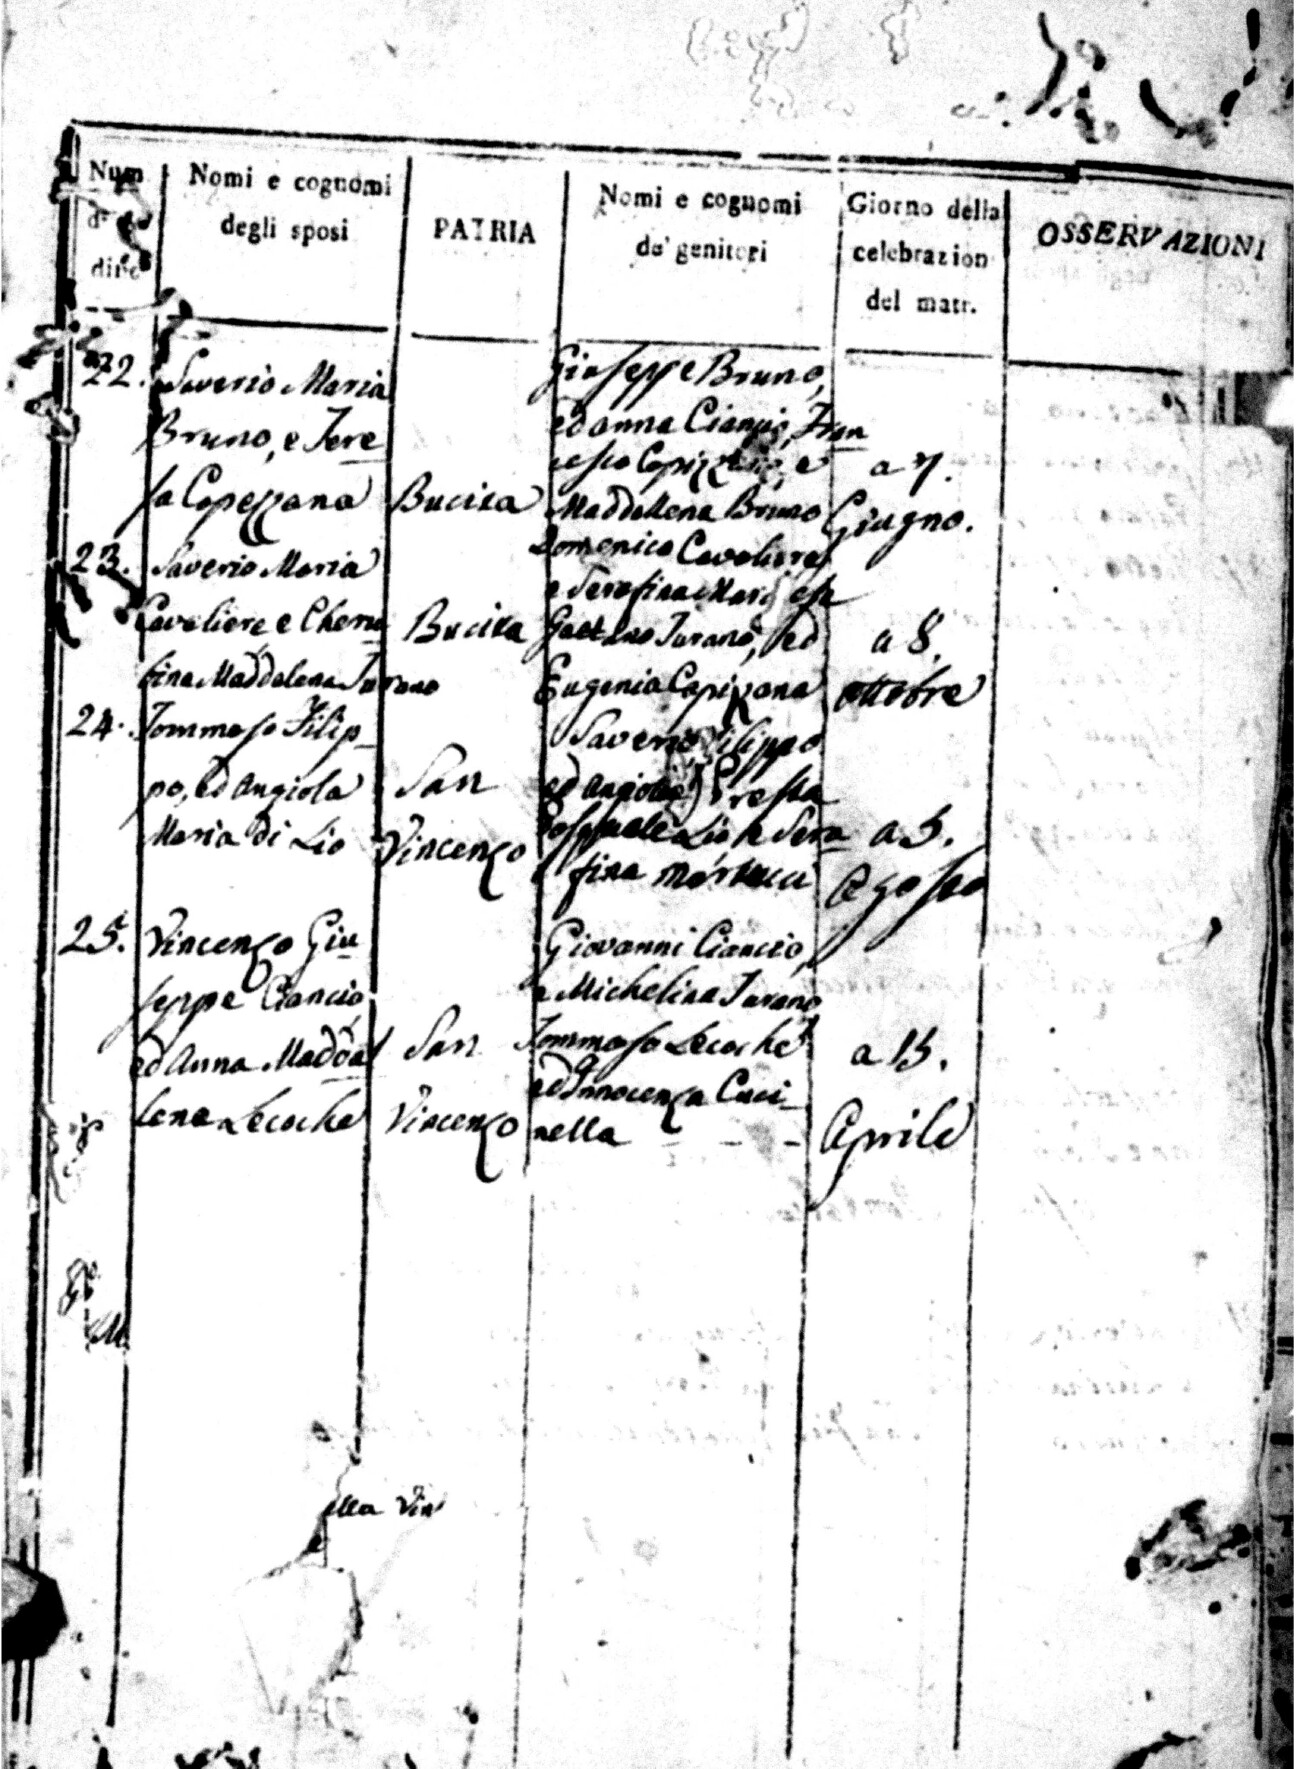 Num
d'
Nomi e cognomi
degli sposi
PATRIA
Nomi e cognomi
de' genitori
Giorno della
celebrazion
del matr.
OSSERVAZIONI
22. Saverio Maria
Bruno, e Tere
sa Capezzana
Bucita
Giuseppe Bruno,
ed anna Ciancio, Fran
cesco
Maddallena Bruno
a 7.
Giugno.
23. Saverio Maria
Cavaliere e Cheru
fina Maddalena Turano
Bucita
Domenico Cavaliere
e Serafina
Gaetano Turano, ed
Eugenia Capizana
a 8.
ottobre
24. Tommaso Filip
po, ed Angiola
Maria di Lio
San
Vincenzo
Saverio Filippo
ed Angiola Presta
Pasquale Lio e Sera
fina Martucci
a 5.
Agosto
25. Vincenzo Giu
seppe Ciancio
ed Anna Madda
lena Lecoche
San
Vincenzo
Giovanni Ciancio,
e Michelina Turano
Tommaso Lecoche
ed Innocenza Cuci
nella - - -
a 15.
Aprile
ella Vin